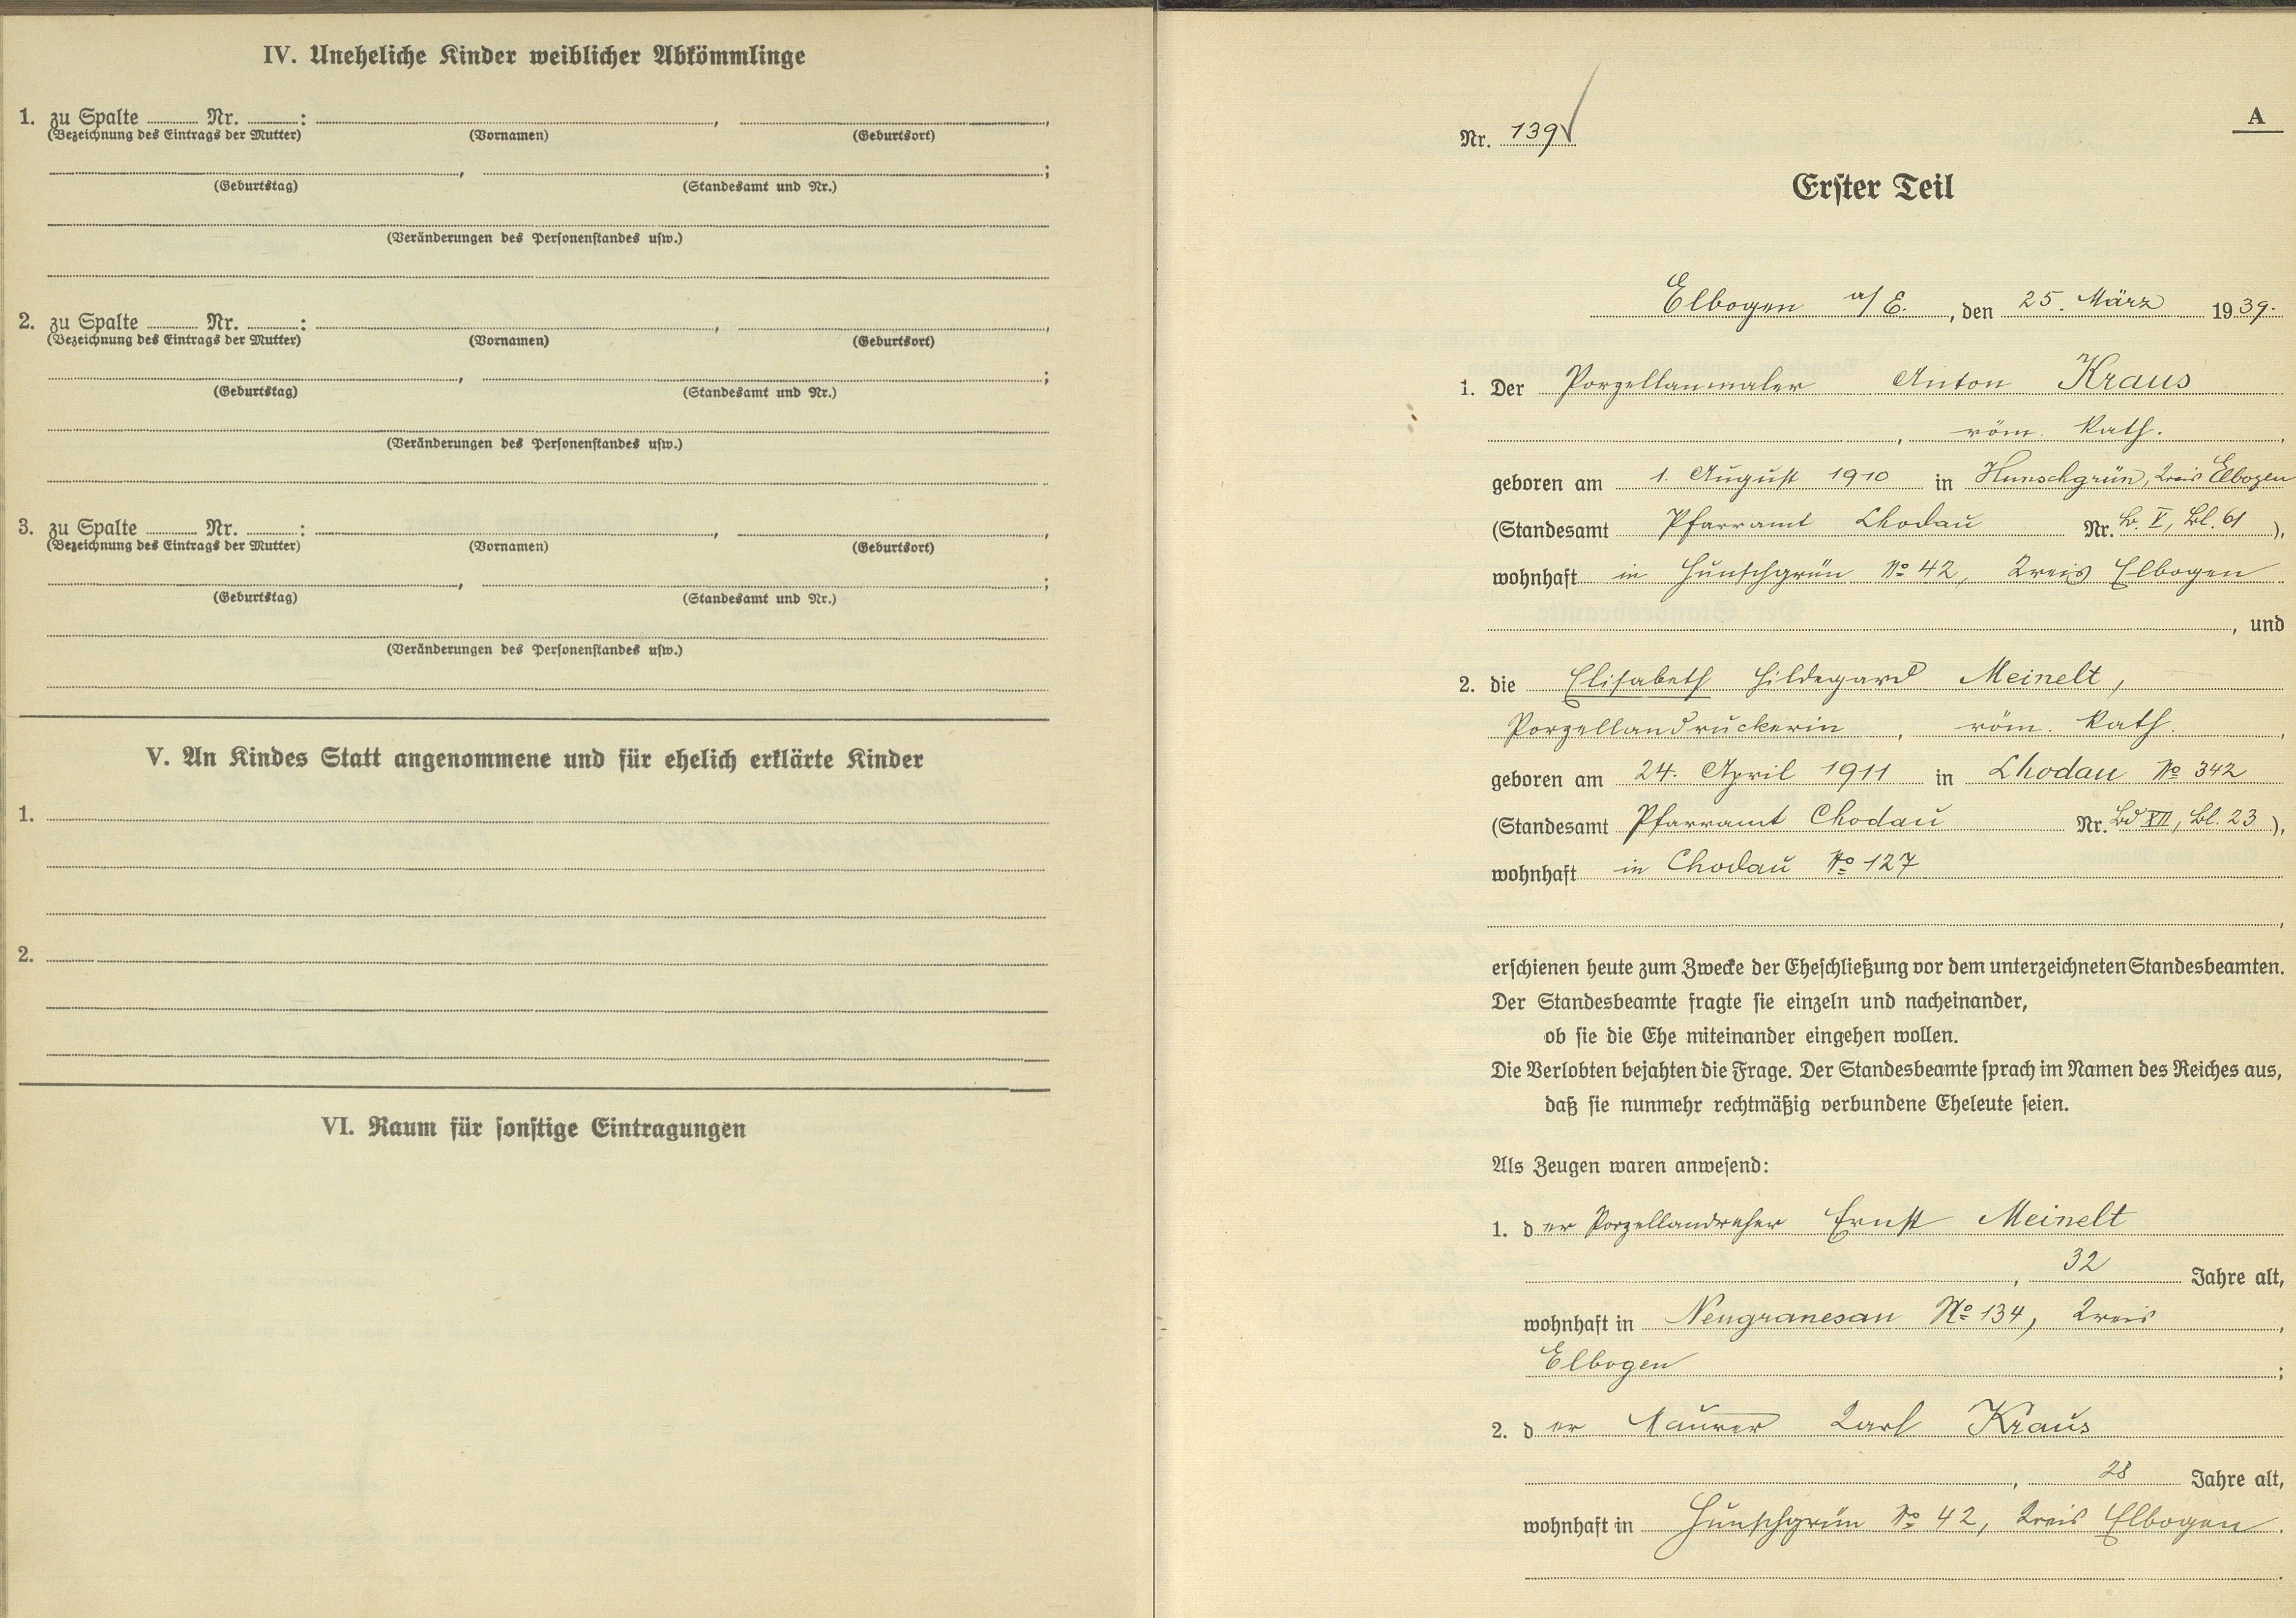 IV. Uneheliche Kinder weiblicher Abkömmlinge
1. zu Spalte ........ Nr. ........: ........, ........,
(Bezeichnung des Eintrags der Mutter) (Vornamen) (Geburtsort)
........, ........;
(Geburtstag) (Standesamt und Nr.)
(Veränderungen des Personenstandes usw.)
2. zu Spalte ........ Nr. ........: ........, ........,
(Bezeichnung des Eintrags der Mutter) (Vornamen) (Geburtsort)
........, ........;
(Geburtstag) (Standesamt und Nr.)
(Veränderungen des Personenstandes usw.)
3. zu Spalte ........ Nr. ........: ........, ........,
(Bezeichnung des Eintrags der Mutter) (Vornamen) (Geburtsort)
........, ........;
(Geburtstag) (Standesamt und Nr.)
(Veränderungen des Personenstandes usw.)
V. An Kindes Statt angenommene und für ehelich erklärte Kinder
1.
2.
VI. Raum für sonstige Eintragungen
A
Nr. 139
Erster Teil
Elbogen a/E., den 25. März 1939.
1. Der Porzellanmaler Anton Kraus
, röm. kath.,
geboren am 1. August 1910 in Hunschgrün, Kreis Elbogen
(Standesamt Pfarramt Chodau Nr. B. V, Bl. 61),
wohnhaft in Hunschgrün No 42, Kreis Elbogen
, und
2. die Elisabeth Hildegard Meinelt,
Porzellandruckerin, röm. kath.,
geboren am 24. April 1911 in Chodau No 342
(Standesamt Pfarramt Chodau Nr. Bd XII, Bl. 23),
wohnhaft in Chodau No 127
,
erschienen heute zum Zwecke der Eheschließung vor dem unterzeichneten Standesbeamten.
Der Standesbeamte fragte sie einzeln und nacheinander,
ob sie die Ehe miteinander eingehen wollen.
Die Verlobten bejahten die Frage. Der Standesbeamte sprach im Namen des Reiches aus,
daß sie nunmehr rechtmäßig verbundene Eheleute seien.
Als Zeugen waren anwesend:
1. der Porzellandreher Ernst Meinelt
, 32 Jahre alt,
wohnhaft in Neugranesau No 134, Kreis,
Elbogen;
2. der Maurer Karl Kraus
, 28 Jahre alt,
wohnhaft in Hunschgrün No 42, Kreis Elbogen.